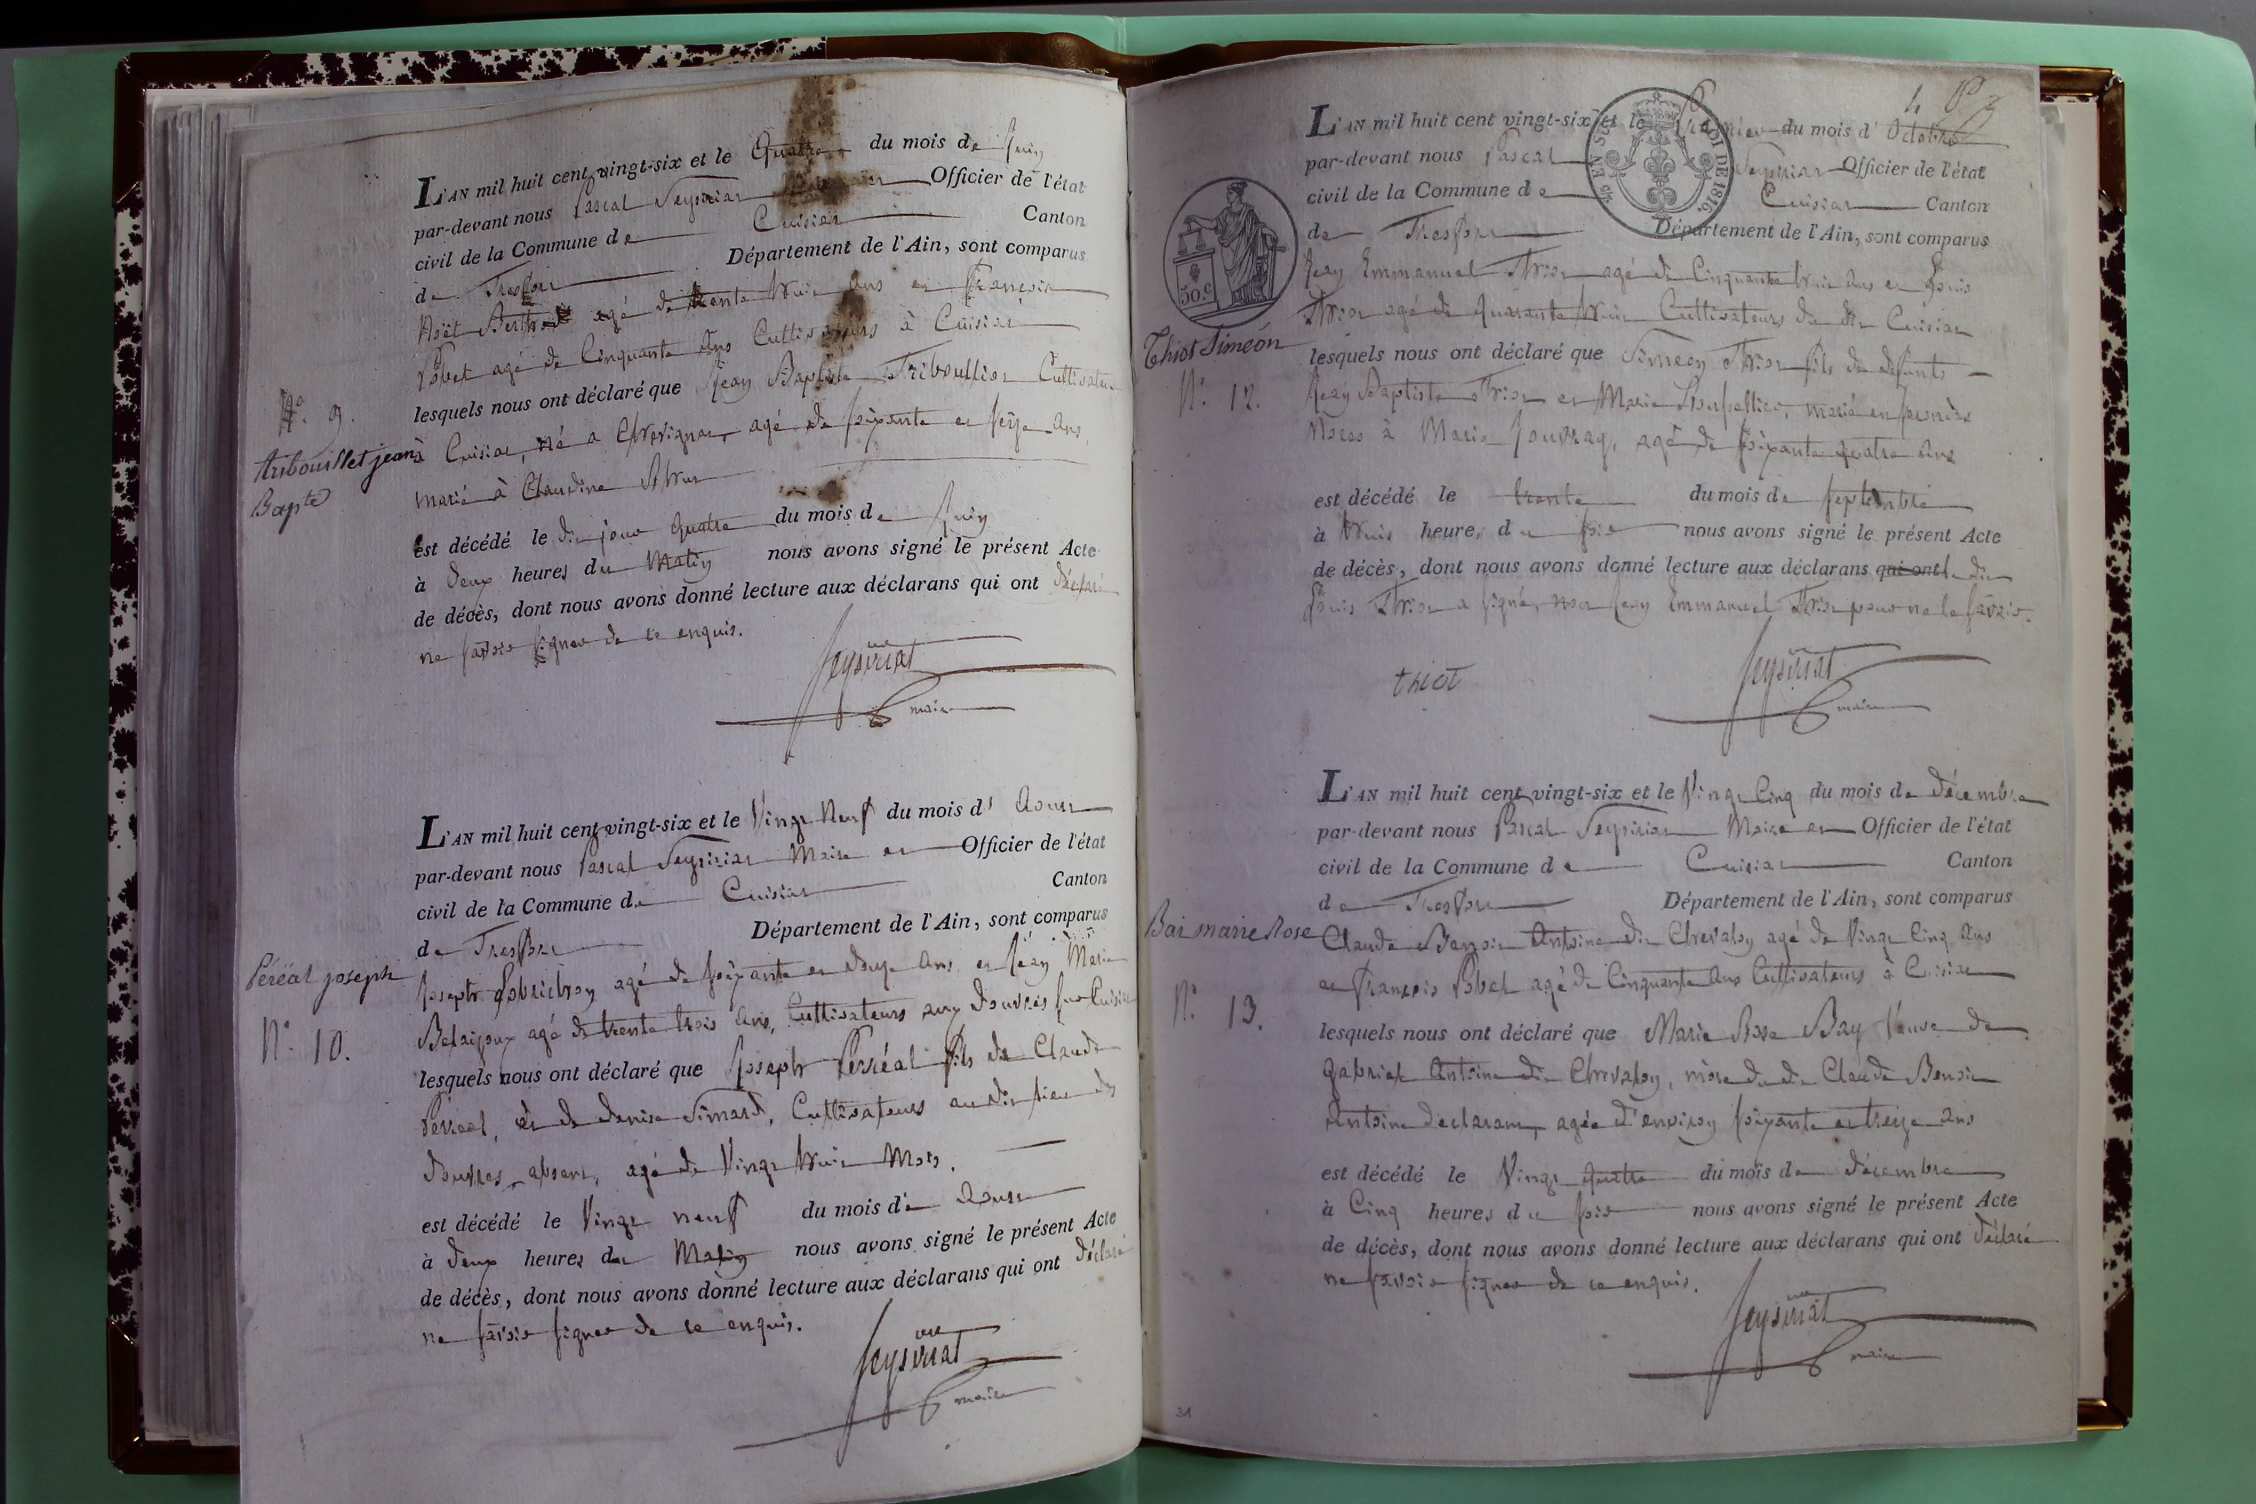 L'AN mil huit cent vingt-six et le Quatre du mois de Juin
par-devant nous Pascal Seysiriat Officier de l'état
civil de la Commune de Cuisiat Canton
de Treffort Département de l'Ain, sont comparus
agé de trente huit ans et François
Pobel agé de Cinquante ans Cultivateurs à Cuisiat
lesquels nous ont déclaré que Jean Baptiste Triboulliot Cultivateur
N.o 9.
tribouillet jean
Bapte
à Cuisiat, né a Chevignat, agé de soixante et seize ans,
marié à Claudine
est décédé le dit jour quatre du mois de Juin
à deux heures du Matin nous avons signé le présent Acte
de décès, dont nous avons donné lecture aux déclarans qui ont déclaré
ne savoir signer de ce enquis.
Seysiriat
maire
L'AN mil huit cent vingt-six et le Vingt Neuf du mois d' Aoust
par-devant nous Pascal Seysiriat Maire et Officier de l'état
civil de la Commune de Cuisiat Canton
de Treffort Département de l'Ain, sont comparus
Péréal joseph
N.o 10.
Joseph agé de soixante et douze ans et Jean Marie
Belaijoux agé de trente trois ans, Cultivateurs aux Douvres sur Cuisiat
lesquels nous ont déclaré que Joseph Perréal fils de Claude
Perréal, et de Denise Simard, Cultivateurs au dit lieu des
Douvres absent, agé de Vingt huit Mois.
est décédé le Vingt neuf du mois d' Aoust
à deux heures du Matin nous avons signé le présent Acte
de décès, dont nous avons donné lecture aux déclarans qui ont déclaré
ne savoir signer de ce enquis.
Seysiriat
maire
LOI DE 1816.
50.c
L'AN mil huit cent vingt-six et le premier du mois d' Octobre
par-devant nous Pascal Seysiriat Officier de l'état
civil de la Commune de Cuisiat Canton
de Treffort Département de l'Ain, sont comparus
Jean Emmanuel Thiot agé de Cinquante huit ans et Louis
Thiot agé de Quarante huit Cultivateurs du dit Cuisiat
Thiot Siméon
N.o 12.
lesquels nous ont déclaré que Simeon Thiot fils de défunts
Jean Baptiste Thiot et Marie marié en premières
Noces à Marie Jouvray, agé de soixante quatre ans
est décédé le trente du mois de septembre
à huit heures du soir nous avons signé le présent Acte
de décès, dont nous avons donné lecture aux déclarans qui ont le dit
Louis Thiot a signé, non Jean Emmanuel Thiot pour ne le savoir.
thiot
Seysiriat
maire
L'AN mil huit cent vingt-six et le Vingt Cinq du mois de décembre
par-devant nous Pascal Seysiriat Maire et Officier de l'état
civil de la Commune de Cuisiat Canton
de Treffort Département de l'Ain, sont comparus
Bai marie Rose
N.o 13.
Claude Benoit Antoine dit Chevalon agé de Vingt Cinq ans
et François Pobel agé de Cinquante ans Cultivateurs à Cuisiat
lesquels nous ont déclaré que Marie Rose Bay Veuve de
Gabriel Antoine dit Chevalon, mère du dit Claude Benoit
Antoine declarant, agée d'environ soixante et treize ans
est décédé le Vingt quatre du mois de décembre
à Cinq heures du soir nous avons signé le présent Acte
de décès, dont nous avons donné lecture aux déclarans qui ont déclaré
ne savoir signer de ce enquis.
Seysiriat
maire
31